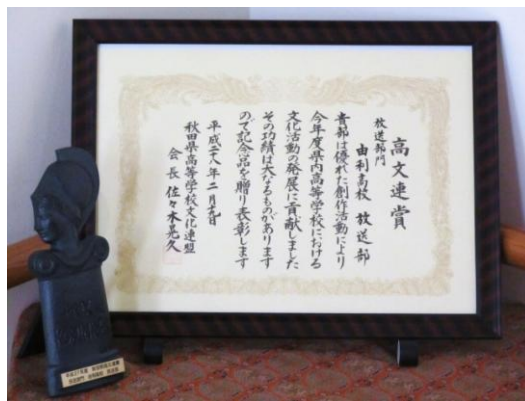 高文連賞
放送部門
由利高校 放送部
貴部は優れた創作活動により
今年度県内高等学校における
文化活動の発展に貢献しました
その功績は大なるものがあります
ので記念品を贈り表彰します
秋田県高等学校文化連盟
会長 佐々木晃久